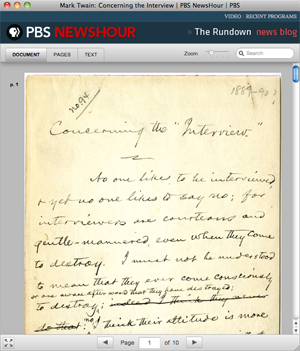 Mark Twain: Concerning the Interview | PBS NewsHour | PBS
VIDEO RECENT PROGRAMS
PBS NEWSHOUR
» The Rundown news blog
DOCUMENT PAGES TEXT
Zoom
Search
p. 1
no. 94
1889-90
Concerning the "Interview."
No one likes to be interviewed,
& yet no one likes to say no; for
interviewers are courteous and
gentle-mannered, even when they come
to destroy. I must not be understood
to mean that they ever come consciously
or are aware afterward that they have destroyed;
to destroy; indeed I think they never
do that; no, I think their attitude is more
Page 1 of 10